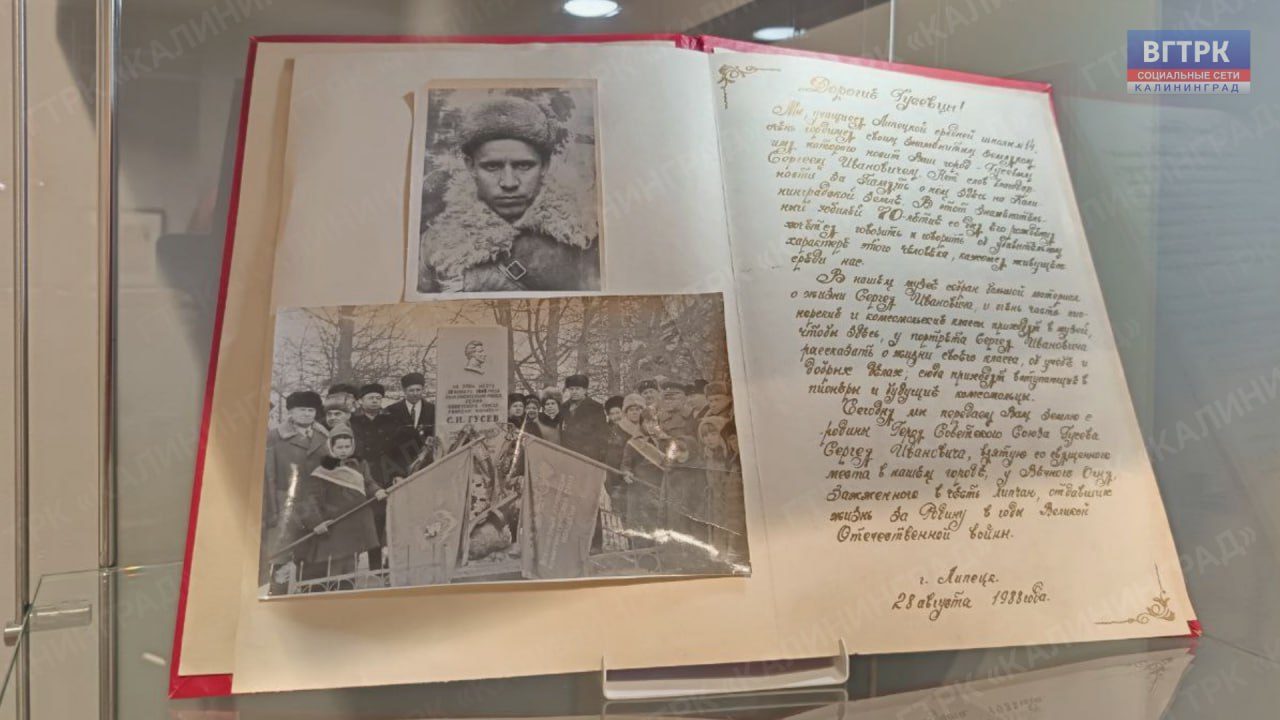 ВГТРК
СОЦИАЛЬНЫЕ СЕТИ
КАЛИНИНГРАД
Дорогие Гусевцы!
Мы, учащиеся Липецкой средней школы №14,
очень гордимся своим знаменитым земляком,
имя которого носит Ваш город - Гусевым
Сергеем Ивановичем. Нет слов благодар-
ности за Память о нем здесь на Кали-
нинградской Земле. В этот знаменатель-
ный юбилей 70-летие со дня его рождения
хочется говорить и говорить об удивительном
характере этого человека, кажется живущего
среди нас.
В нашем музее собран большой материал
о жизни Сергея Ивановича, и очень часто пио-
нерские и комсомольские классы приходят в музей,
чтобы здесь, у портрета Сергея Ивановича
рассказать о жизни своего класса, об учебе и
добрых делах, сюда приходят вступающие в
пионеры и будущие комсомольцы.
Сегодня мы передаем Вам Землю с
родины Героя Советского Союза Гусева
Сергея Ивановича, взятую со священного
места в нашем городе, у Вечного Огня,
Зажженного в честь липчан, отдавших
жизнь за Родину в годы Великой
Отечественной войны.
г. Липецк.
28 августа 1988 года.
НА ЭТОМ МЕСТЕ
СОВЕТСКОГО СОЮЗА
С.И. ГУСЕВ